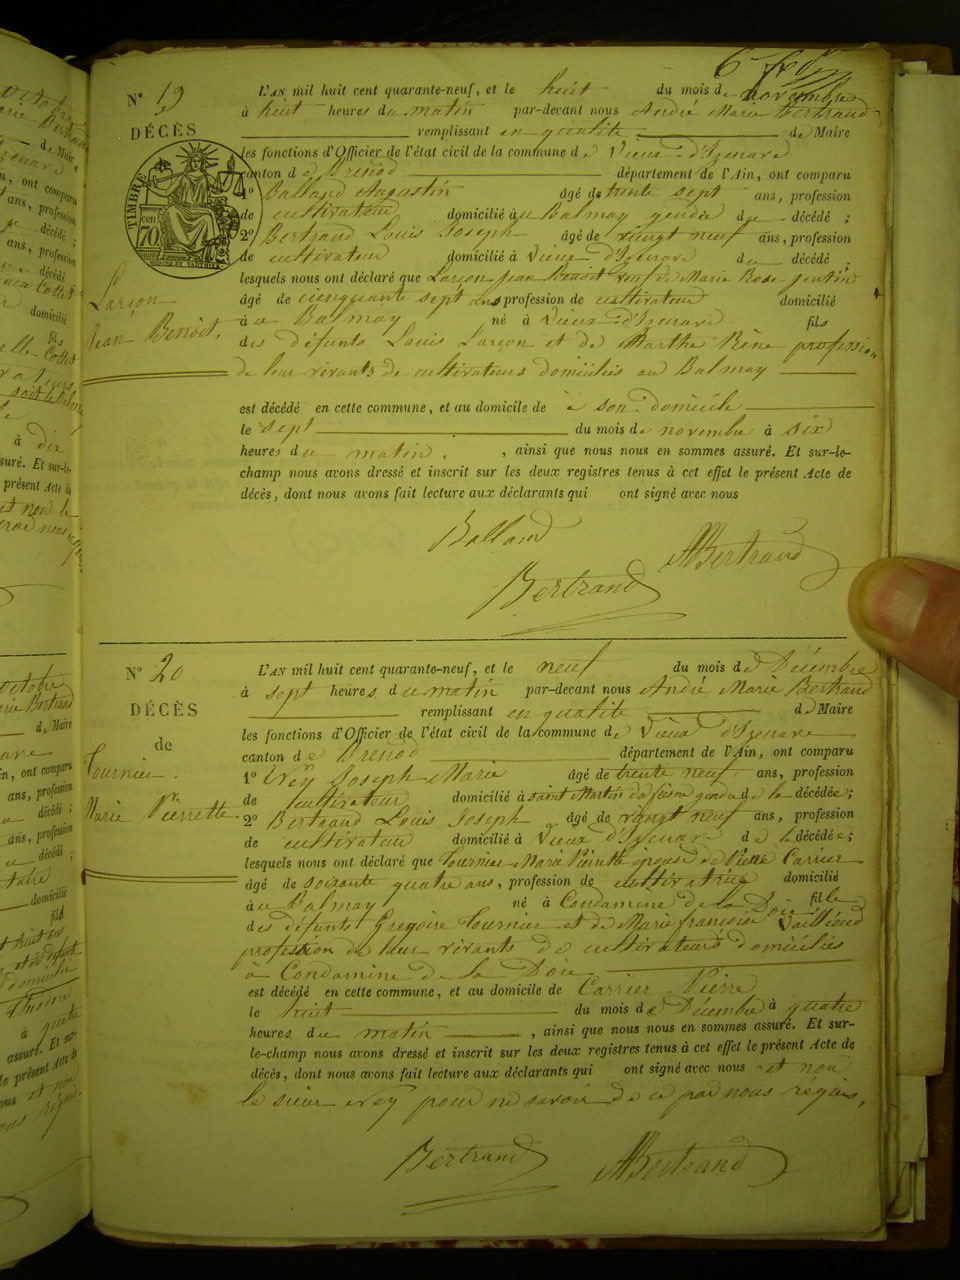 6 fev
N° 19
L'AN mil huit cent quarante-neuf, et le huit du mois de novembre
à huit heures du matin par-devant nous André Marie Bertrand
DÉCÈS
remplissant en qualité de Maire
les fonctions d'Officier de l'état civil de la commune de Vieux d'Izenave
canton de Brenod département de l'Ain, ont comparu
TIMBRE
cen 70
1° Balland Augustin âgé de trente sept ans, profession
de cultivateur domicilié au Balmay gendre du décédé ;
2° Bertrand Louis Joseph âgé de vingt neuf ans, profession
de cultivateur domicilié à Vieux d'Izenave du décédé ;
lesquels nous ont déclaré que Larçon Jean Benoit veuf de Marie Rose
Larçon
Jean Benoit.
âgé de cienquante sept ans profession de cultivateur domicilié
à au Balmay né à Vieux d'Izenave fils
des défunts Louis Larçon et de Marthe Rène profession
de leur vivants de cultivateurs domiciliés au Balmay
est décédé en cette commune, et au domicile de à son domicile
le sept du mois de novembre à six
heures du matin , ainsi que nous nous en sommes assuré. Et sur-le-
champ nous avons dressé et inscrit sur les deux registres tenus à cet effet le présent Acte de
décès, dont nous avons fait lecture aux déclarants qui ont signé avec nous
Balland
ABertrand
Bertrand
N° 20
L'AN mil huit cent quarante-neuf, et le neuf du mois de Décembre
à sept heures du matin par-devant nous André Marie Bertrand
DÉCÈS
remplissant en qualité de Maire
de
les fonctions d'Officier de l'état civil de la commune de Vieux d'Izenave
canton de Brenod département de l'Ain, ont comparu
Tournier
Marie Pierrette
1° Joseph Marie âgé de trente neuf ans, profession
de cultivateur domicilié à saint Martin du fresne gendre de la décédée ;
2° Bertrand Louis Joseph âgé de vingt neuf ans, profession
de cultivateur domicilié à Vieux d'Izenave de la décédée ;
lesquels nous ont déclaré que Tournier Marie Pierrette épouse de Pierre Carrier
âgé de soixante quatre ans, profession de cultivatrice domicilié
à au Balmay né à Condamine de la Doie fille
des défunts Gregoire Tournier et de Marie françoise
profession de leur vivants de cultivateurs domiciliés
à Condamine de la Doie
est décédé en cette commune, et au domicile de Carrier Pierre
le huit du mois de Décembre à quatre
heures du matin , ainsi que nous nous en sommes assuré. Et sur-
le-champ nous avons dressé et inscrit sur les deux registres tenus à cet effet le présent Acte de
décès, dont nous avons fait lecture aux déclarants qui ont signé avec nous et non
le sieur pour ne savoir de ce par nous réquis,
Bertrand
ABertrand